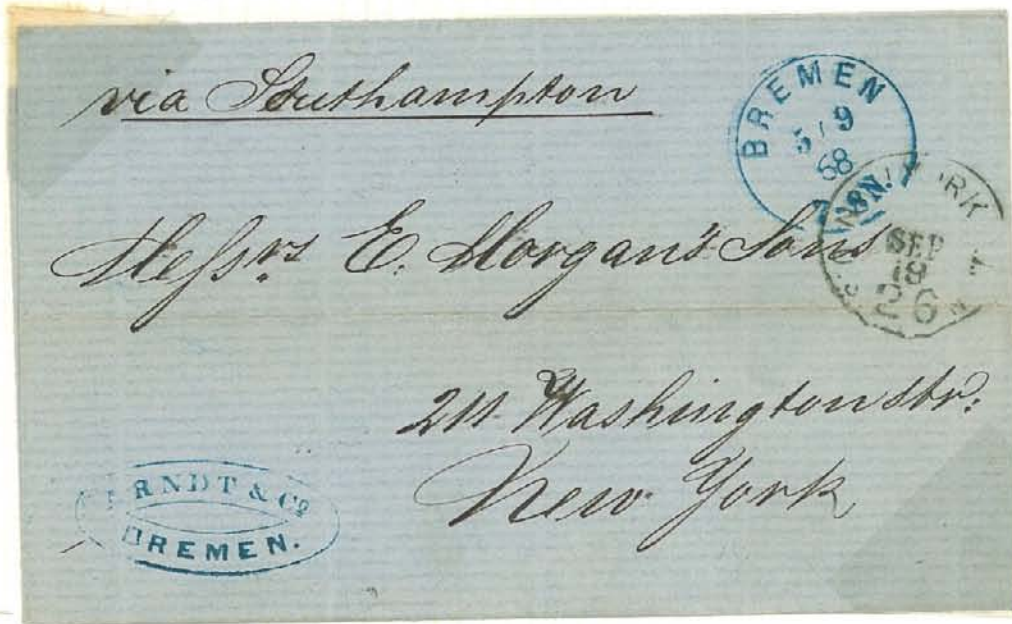 via Southampton
BREMEN
5 / 9
68
N.
SEP
19
26
Messrs E. Morgan's Sons
211 Washington str:
New York
RNDT & Co
BREMEN.